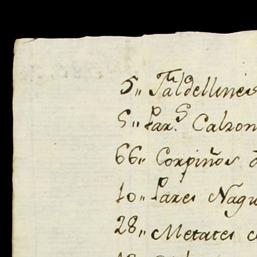 5,, Faldellines
5,, Par.s Calzon
66,, Corpiños d
10,, Pares Nagu
28,, Metates